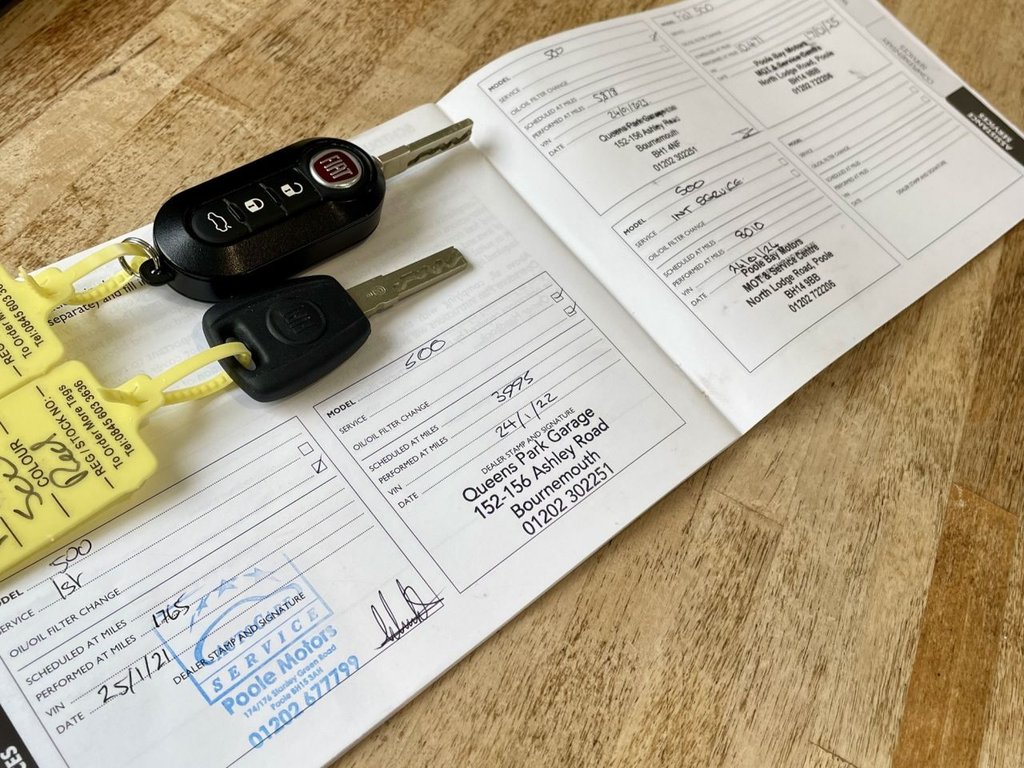 FIAT
separate) and fill
REG / STOCK NO:
To Order More Tags
Tel:0845 603 3636
COLOUR
Red
MODEL 500
SERVICE 1st
OIL/OIL FILTER CHANGE
SCHEDULED AT MILES
PERFORMED AT MILES 1765
VIN
DATE 25/1/21
DEALER STAMP AND SIGNATURE
SERVICE
Poole Motors
174/176 Stanley Green Road
Poole BH15 3AH
01202 677799
MODEL 500
SERVICE
OIL/OIL FILTER CHANGE
SCHEDULED AT MILES
PERFORMED AT MILES 3995
VIN
DATE 24/1/22
DEALER STAMP AND SIGNATURE
Queens Park Garage
152-156 Ashley Road
Bournemouth
01202 302251
MODEL 500
SERVICE
OIL/OIL FILTER CHANGE
SCHEDULED AT MILES
PERFORMED AT MILES 5,878
VIN
DATE 24/01/2023
Queens Park Garage
152-156 Ashley Road
Bournemouth
BH1 4NF
01202 302251
MODEL 500
SERVICE INT SERVICE
OIL/OIL FILTER CHANGE
SCHEDULED AT MILES
PERFORMED AT MILES 8010
VIN
DATE 22/01/24
Poole Bay Motors
MOT & Service Centre
North Lodge Road, Poole
BH14 9BB
01202 722206
MODEL Fiat 500
SERVICE
OIL/OIL FILTER CHANGE
SCHEDULED AT MILES
PERFORMED AT MILES 10,471
VIN
DATE
Poole Bay Motors
MOT & Service Centre
North Lodge Road, Poole
BH14 9BB
01202 722206
MODEL
SERVICE
OIL/OIL FILTER CHANGE
SCHEDULED AT MILES
PERFORMED AT MILES
VIN
DATE
DEALER STAMP AND SIGNATURE
ASSISTANCE
SERVICES